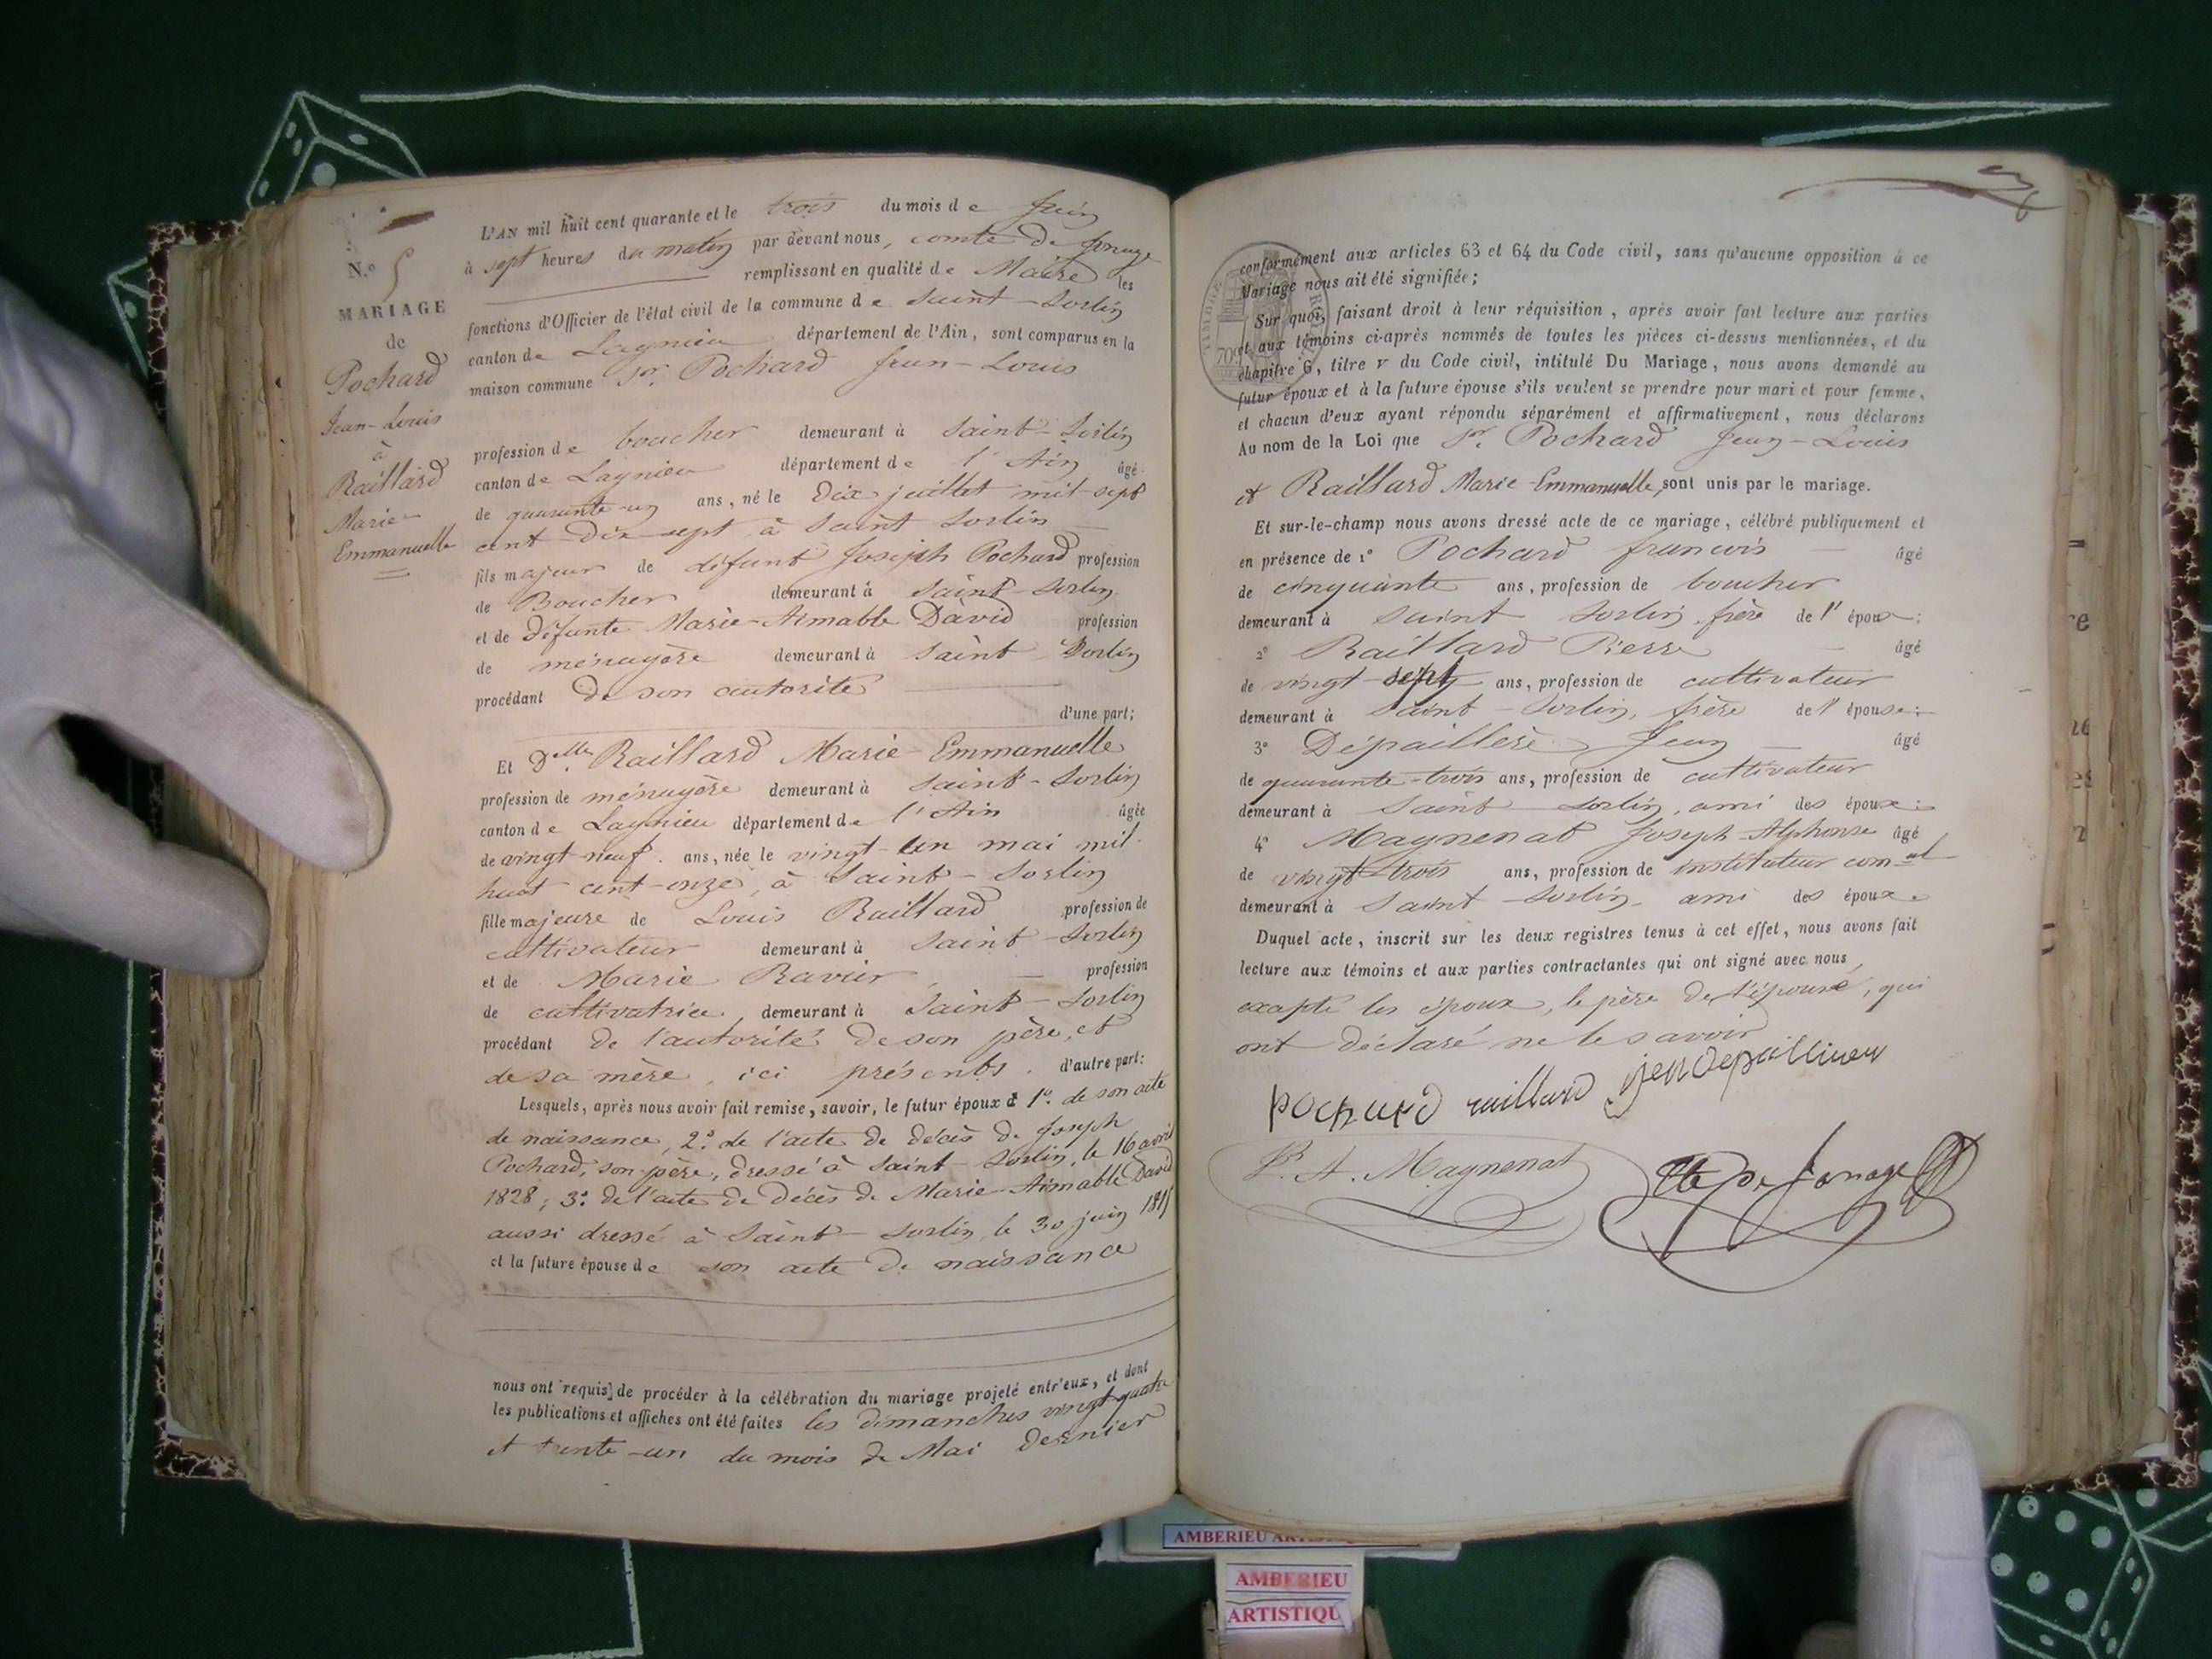 N.º 5
MARIAGE
de
Pochard
Jean-Louis
à
Raillard
Marie-
Emmanuelle
L'AN mil huit cent quarante et le trois du mois de juin
à sept heures du matin par devant nous, comte de
remplissant en qualité de Maire les
fonctions d'Officier de l'état civil de la commune de Saint-Sorlin
canton de Lagnieu département de l'Ain, sont comparus en la
maison commune Sr. Pochard Jean-Louis
profession de boucher demeurant à Saint-Sorlin
canton de Lagnieu département de l'Ain âgé
de quarante-un ans, né le dix juillet mil sept
cent dix-sept à Saint Sorlin
fils majeur de défunt Joseph Pochard profession
de Boucher demeurant à Saint-Sorlin
et de défunte Marie-Aimable David profession
de ménagère demeurant à Saint Sorlin
procédant de son autorité
d'une part;
Et Delle Raillard Marie-Emmanuelle
profession de ménagère demeurant à Saint-Sorlin
canton de Lagnieu département de l'Ain âgée
de vingt-neuf ans, née le vingt-un mai mil
huit cent-onze, à Saint-Sorlin
fille majeure de Louis Raillard profession de
cultivateur demeurant à Saint-Sorlin
et de Marie Ravier profession
de cultivatrice, demeurant à Saint-Sorlin
procédant de l'autorité de son père, et
de sa mère, ici présents. d'autre part:
Lesquels, après nous avoir fait remise, savoir, le futur époux d 1º. de son acte
de naissance, 2º. de l'acte de décès de Joseph
Pochard, son père, dressé à Saint-Sorlin, le 16 avril
1828; 3º. de l'acte de décès de Marie-Aimable David
aussi dressé à Saint-Sorlin, le 30 juin 1815
et la future épouse de son acte de naissance
nous ont requis de procéder à la célébration du mariage projeté entr'eux, et dont
les publications et affiches ont été faites les dimanches vingt-quatre
et trente-un du mois de Mai dernier
conformément aux articles 63 et 64 du Code civil, sans qu'aucune opposition à ce
Mariage nous ait été signifiée;
Sur quoi, faisant droit à leur réquisition, après avoir fait lecture aux parties
et aux témoins ci-après nommés de toutes les pièces ci-dessus mentionnées, et du
chapitre 6, titre v du Code civil, intitulé Du Mariage, nous avons demandé au
futur époux et à la future épouse s'ils veulent se prendre pour mari et pour femme,
et chacun d'eux ayant répondu séparément et affirmativement, nous déclarons
Au nom de la Loi que Sr. Pochard Jean-Louis
et Raillard Marie-Emmanuelle, sont unis par le mariage.
Et sur-le-champ nous avons dressé acte de ce mariage, célébré publiquement et
en présence de 1º Pochard francois âgé
de cinquante ans, profession de boucher
demeurant à Saint Sorlin, frère de l'époux;
2º Raillard Pierre âgé
de vingt-sept ans, profession de cultivateur
demeurant à Saint-Sorlin, frère de l'épouse;
3º Dépaillere Jean âgé
de quarante-trois ans, profession de cultivateur
demeurant à Saint Sorlin, ami des époux;
4º Magnenat Joseph-Alphonse âgé
de vingt-trois ans, profession de instituteur com-al
demeurant à Saint-Sorlin, ami des époux.
Duquel acte, inscrit sur les deux registres tenus à cet effet, nous avons fait
lecture aux témoins et aux parties contractantes qui ont signé avec nous,
excepté les époux, le père de l'épouse, qui
ont déclaré ne le savoir
pochard raillard
J. A. Magnenat
TIMBRE ROYAL
70c
AMBERIEU
AMBERIEU
ARTISTIQU